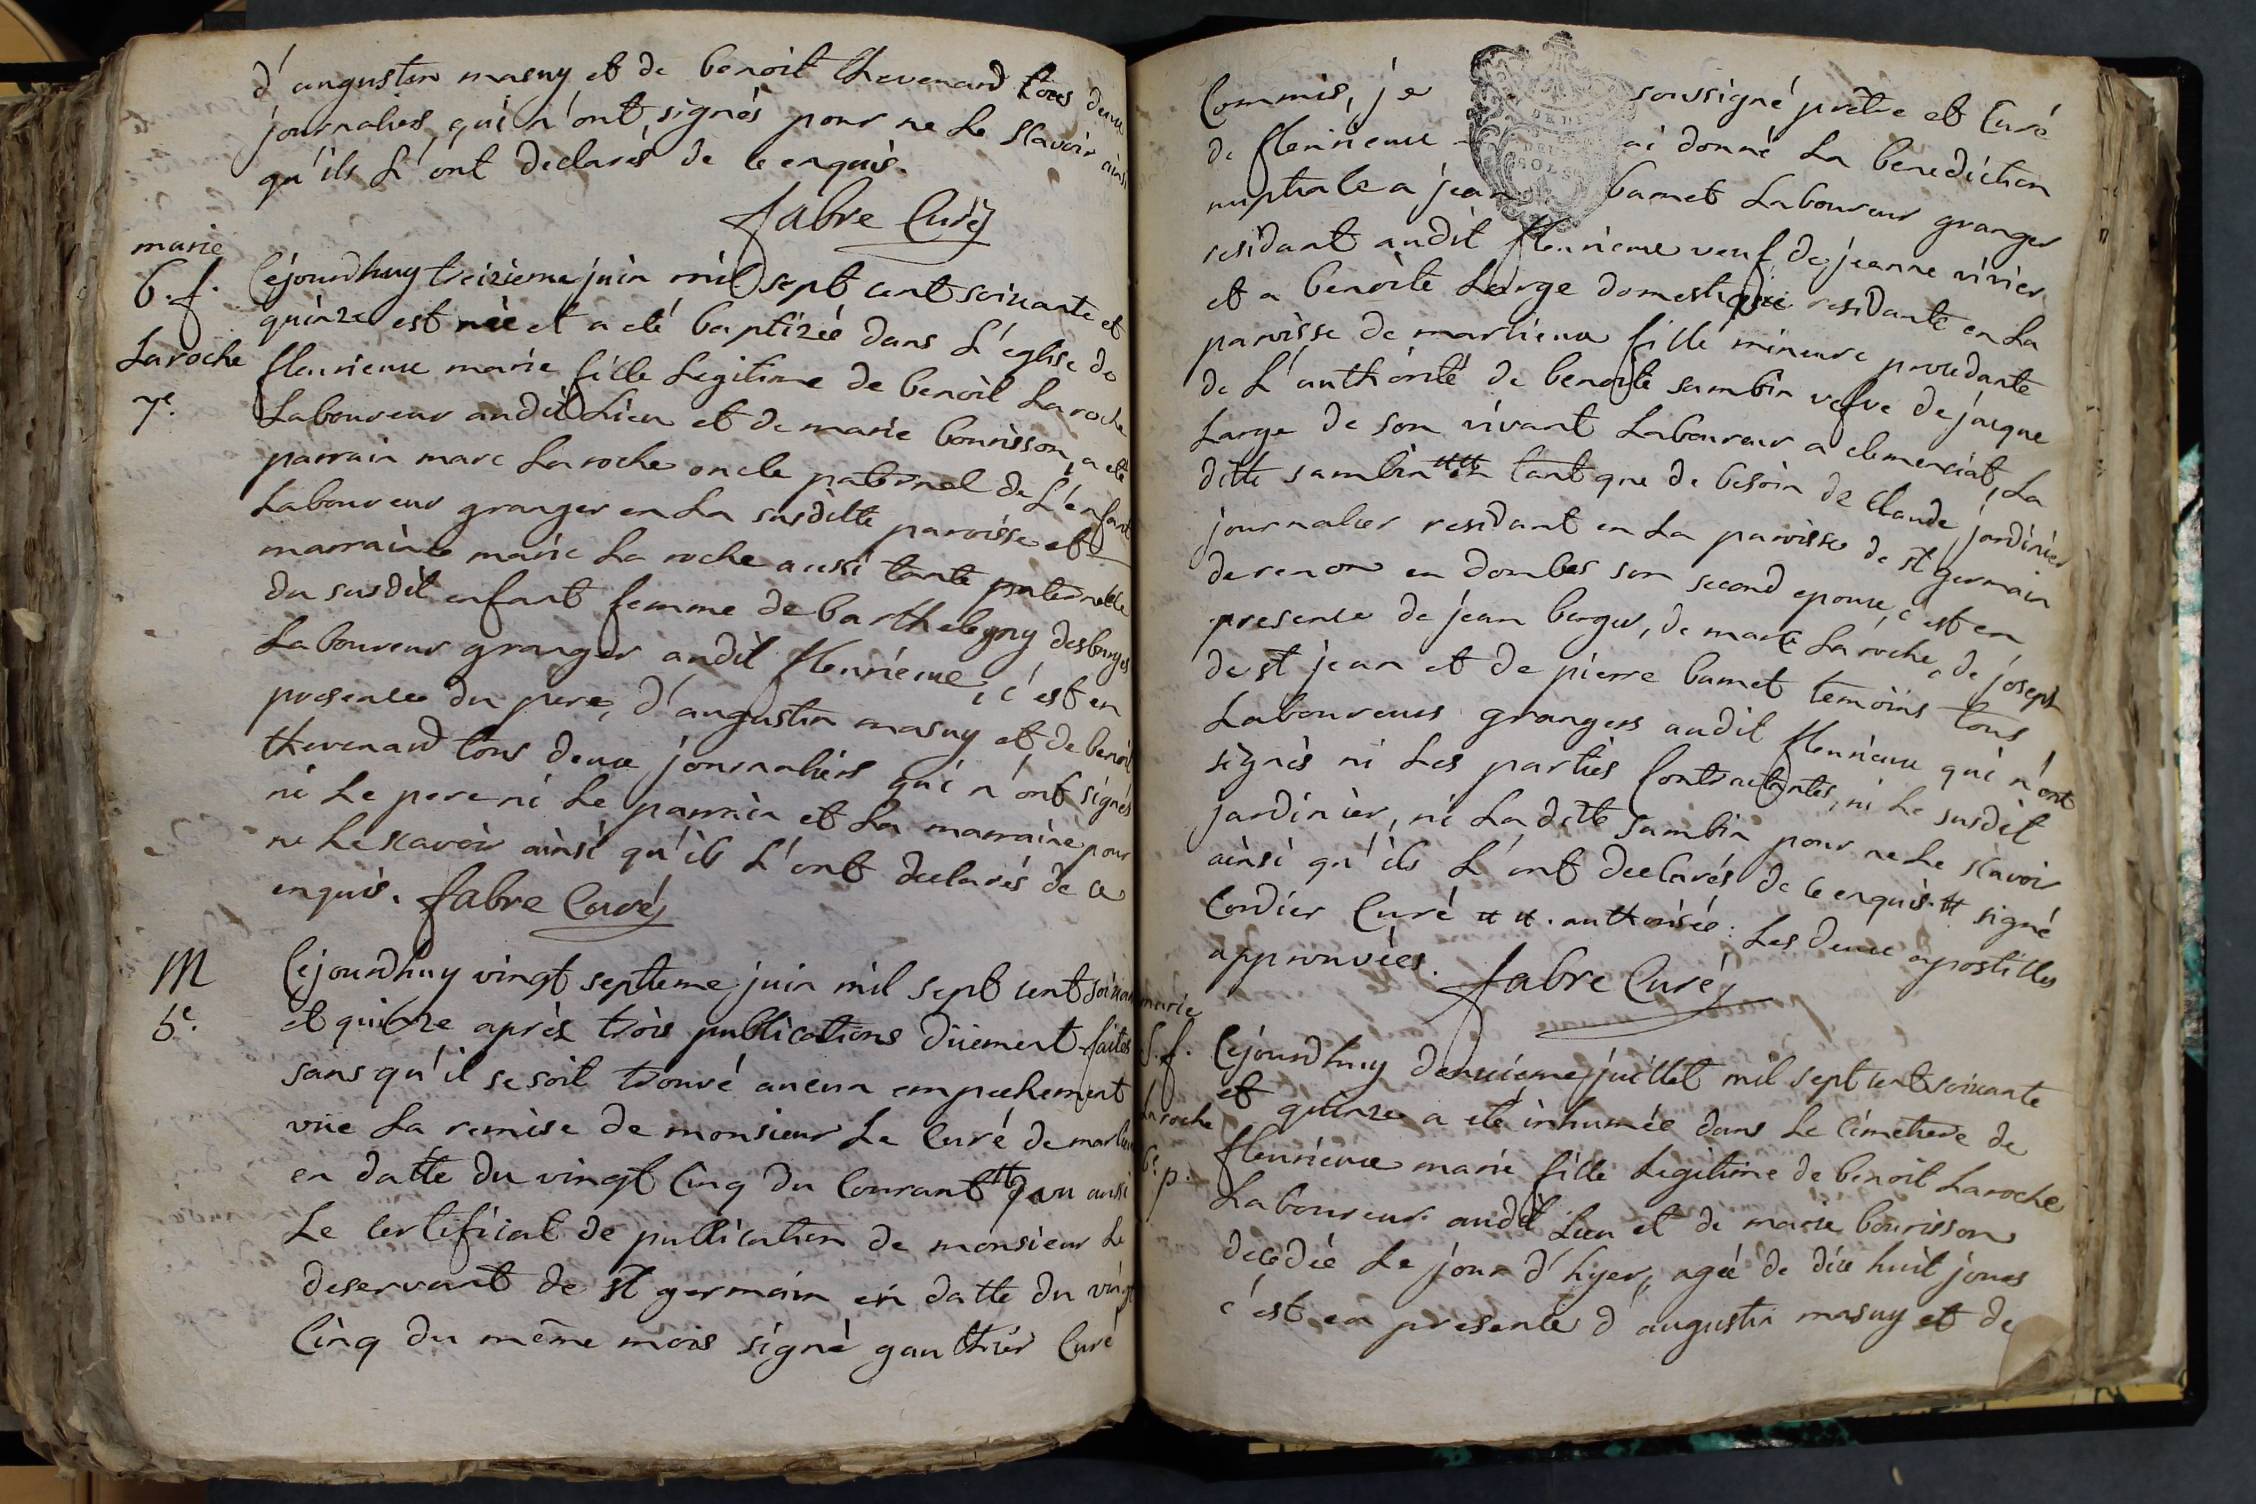 d'augustin masuy et de benoit thevenard tous deux
journaliers qui n'ont signés pour ne le scavoir ainsi
qu'ils l'ont declarés de ce enquis.
fabre Curé
marie
b. f.
Laroche
7e.
Cejourdhuy treizieme juin mil sept cent soixante et
quinze est née et a eté baptizée dans l'eglise de
fleurieux marie fille legitime de benoit Laroche
Laboureur audit Lieu et de marie bourisson, a eté
parrain marc Laroche oncle paternel de l'enfant
Laboureur granger en la susditte paroisse et
marraine marie La roche aussi tante paternelle
du susdit enfant femme de barthelemy desburges
Laboureur granger audit fleurieux, c'est en
presence du pere, d'augustin masuy et de benoit
thevenard tous deux journaliers qui n'ont signés
ni le pere ni le parrain et la marraine pour
ne le scavoir ainsi qu'ils l'ont declarés de ce
enquis. fabre Curé
M
6e.
Cejourdhuy vingt septieme juin mil sept cent soixante
et quinze après trois publications düement faites
sans qu'il se soit trouvé aucun empechement
vüe la remise de monsieur le Curé de marlieux
en datte du vingt Cinq du Courant # vu aussi
le Certificat de publication de monsieur le
deservant de st germain en datte du vingt
Cinq du même mois signé gauthier Curé
Commis, je soussigné prêtre et Curé
de fleurieux ai donné la benediction
nuptiale a jean bamet Laboureur granger
residant audit fleurieux veuf de jeanne vivier
et a benoite Large domestique residante en la
paroisse de marlieux fille mineure procedante
de l'authorité de benoite sambin vefve de jacque
Large de son vivant Laboureur a clemenciat, La
ditte sambin ## tant que de besoin de Claude jardinier
journalier residant en la paroisse de st germain
de renom en dombes son second epoux, c'est en
presence de jean berger, de marc Laroche, de joseph
de st jean et de pierre bamet temoins tous
Laboureurs grangers audit fleurieux qui n'ont
signés ni les parties Contractantes, ni le susdit
jardinier, ni la ditte sambin pour ne le scavoir
ainsi qu'ils l'ont declarés de ce enquis. # signé
Cordier Curé ##. authorisée: les deux apostilles
approuvées. fabre Curé
marie
S. f.
La roche
6e. p.
Cejourdhuy deuxieme juillet mil sept cent soixante
et quinze a eté inhumée dans le cimetiere de
fleurieux marie fille legitime de benoit Laroche
Laboureur audit Lieu et de marie bourisson
decedée le jour d'hyer, agée de dix huit jours
c'est en presence d'augustin masuy et de